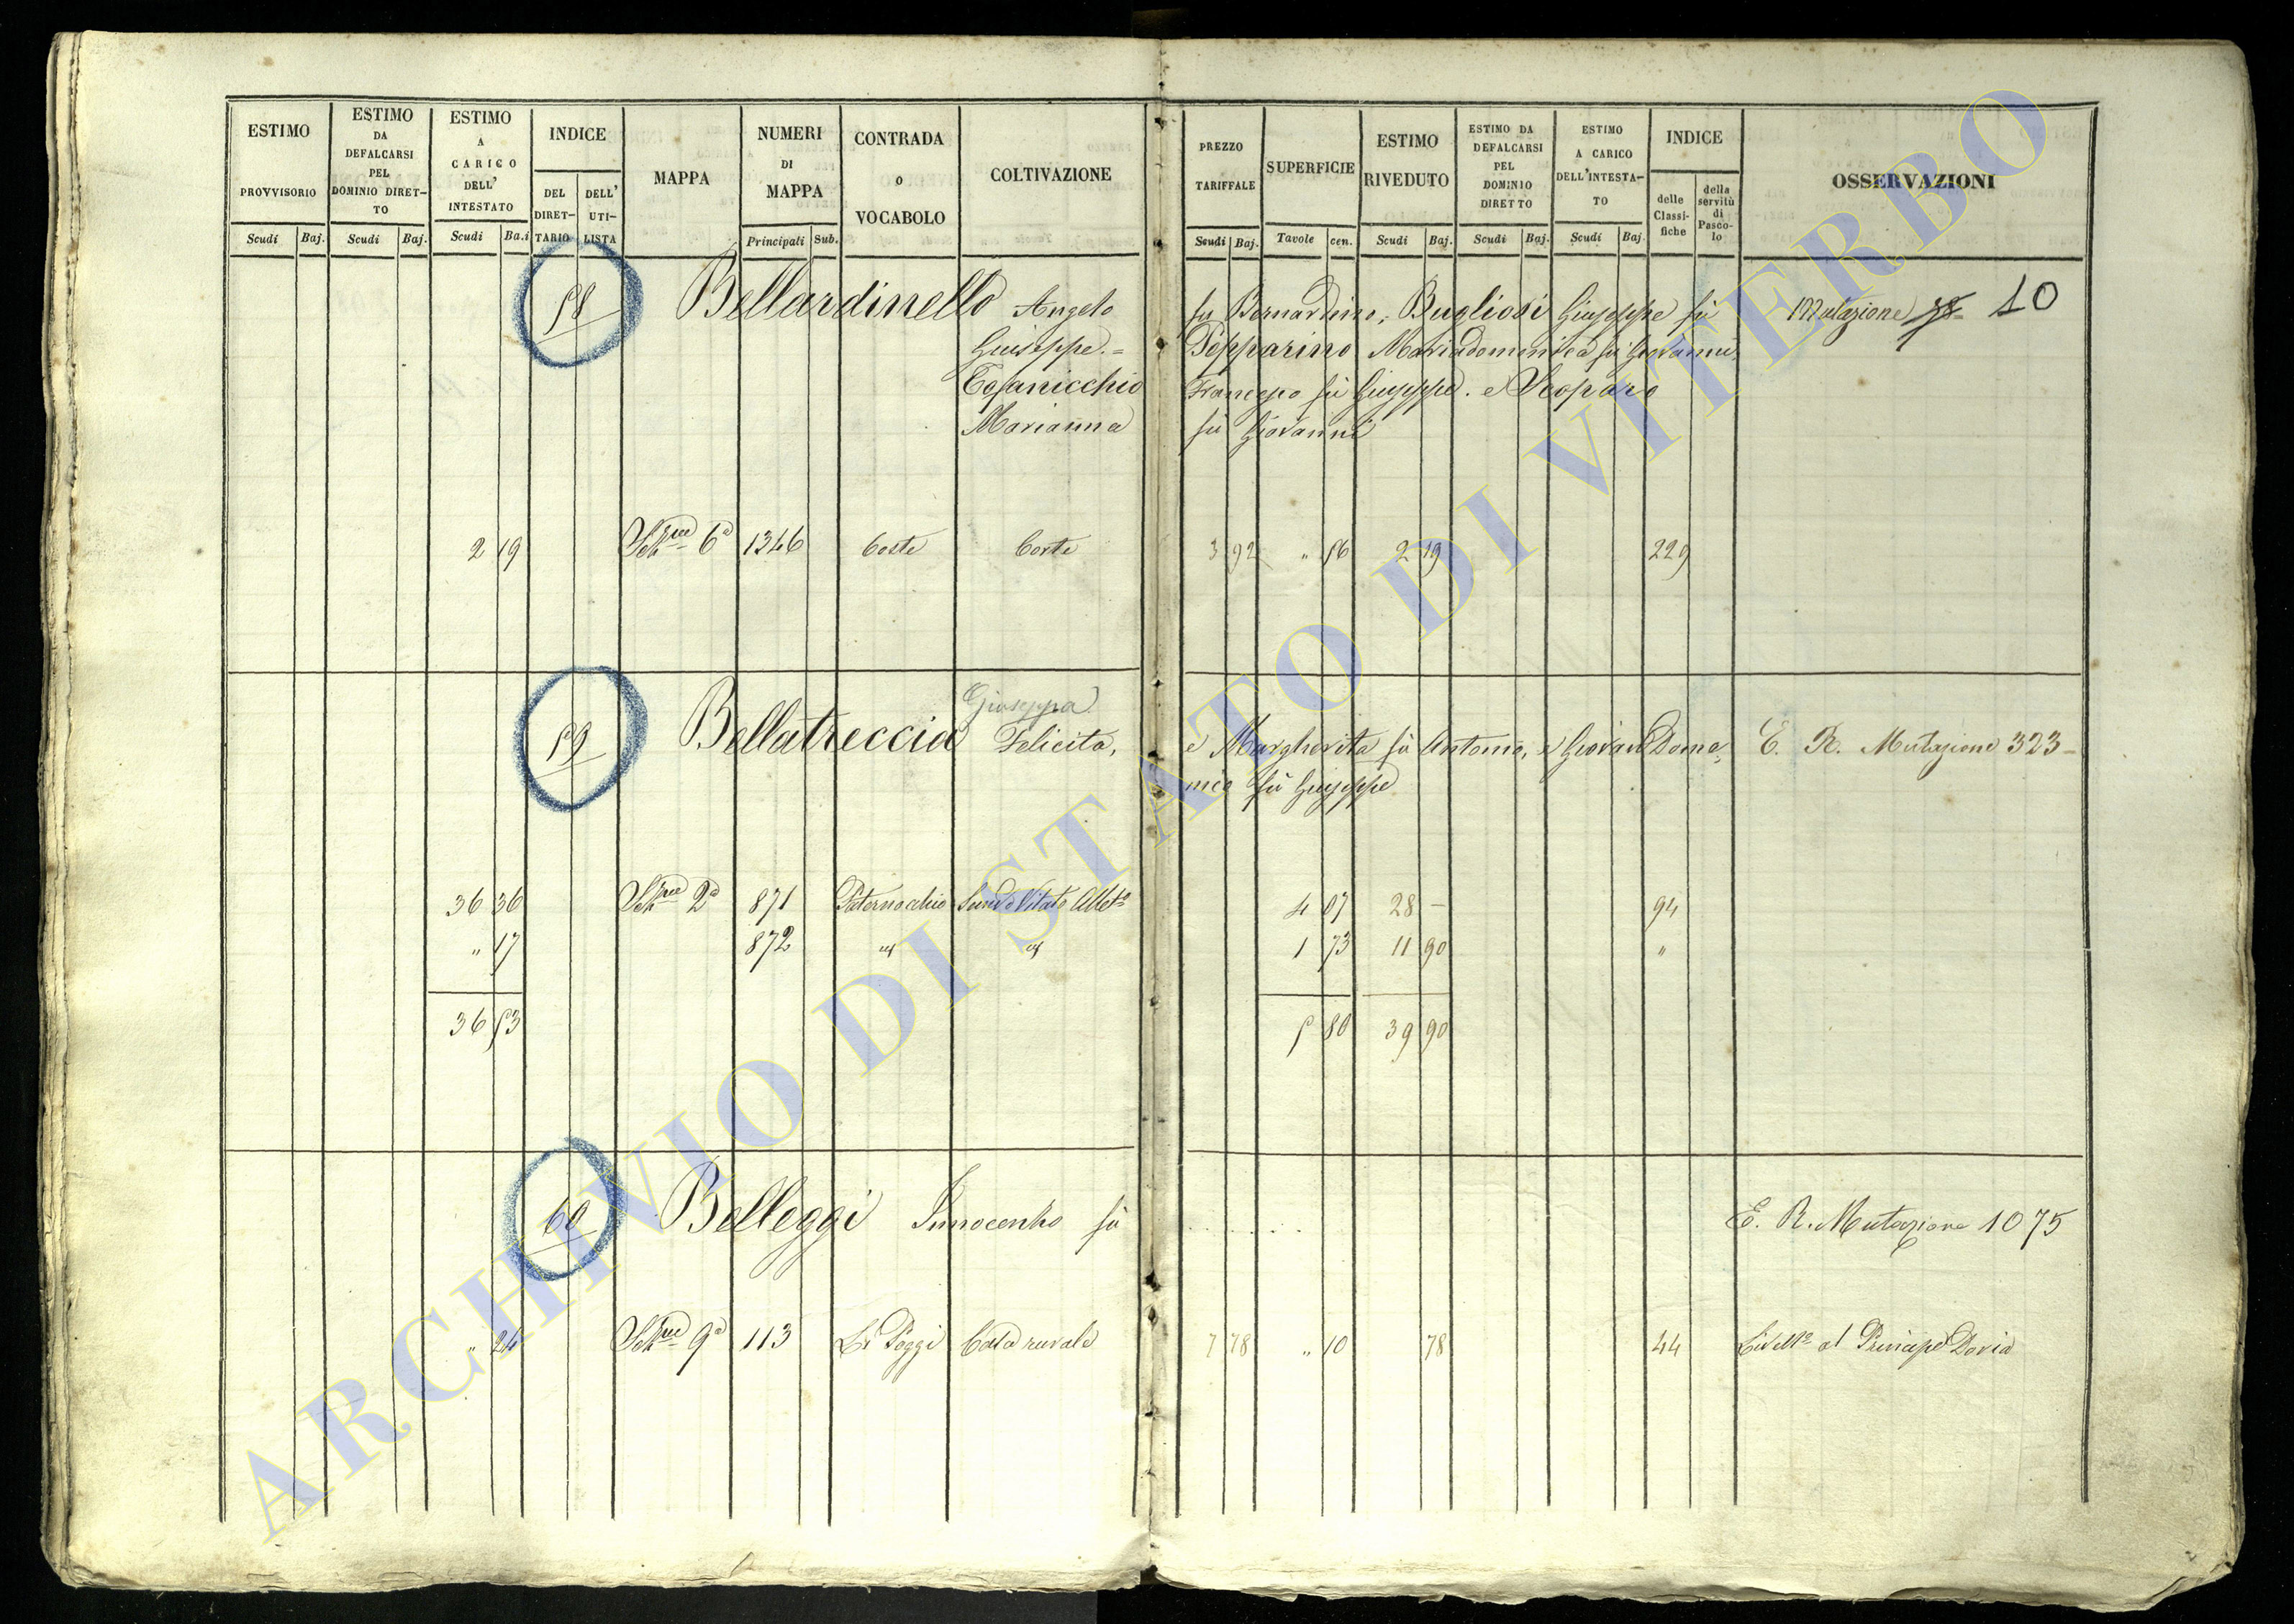 ESTIMO PROVVISORIO
Scudi Baj.
ESTIMO DA DEFALCARSI PEL DOMINIO DIRET-TO
Scudi Baj.
ESTIMO A CARICO DELL' INTESTATO
Scudi Ba.i
INDICE
DEL DIRET-TARIO
DELL' UTI-LISTA
MAPPA
NUMERI DI MAPPA
Principali Sub.
CONTRADA O VOCABOLO
COLTIVAZIONE
PREZZO TARIFFALE
Scudi Baj.
SUPERFICIE
Tavole cen.
ESTIMO RIVEDUTO
Scudi Baj.
ESTIMO DA DEFALCARSI PEL DOMINIO DIRETTO
Scudi Baj.
ESTIMO A CARICO DELL'INTESTA-TO
Scudi Baj.
INDICE
delle Classi-fiche
della servitù di Pasco-lo
OSSERVAZIONI
58 Bellardinello Angelo fu Bernardino, Bugliosi Giuseppe fù Mutazione 10
Giuseppe.= Pepparino Mariadomenica fù Giovanni,
Tofanicchio Francesco fù Giuseppe. e Scoparo
Marianna fù Giovanni
2 19 Sez.ne 6a 1346 Coste Corte 3 92 " 56 2 19 229
Giuseppa
59 Bellatreccia Felicita, e Margherita fù Antonio, e Giovan Dome, E. R. Mutazione 323
nico fù Giuseppe
36 36 Sez.ne 2a 871 Paternocchio Semi.o Vitato Alb.to 4 07 28 – 94
" 17 872 " " 1 73 11 90 "
36 53 5 80 39 90
60 Belleggi Innocenzo fù . . . . . E. R. Mutazione 1075
" 24 Sez.ne 9a 113 Li Poggi Casa rurale 7 78 " 10 78 44 Livell.o al Principe Doria
ARCHIVIO DI STATO DI VITERBO